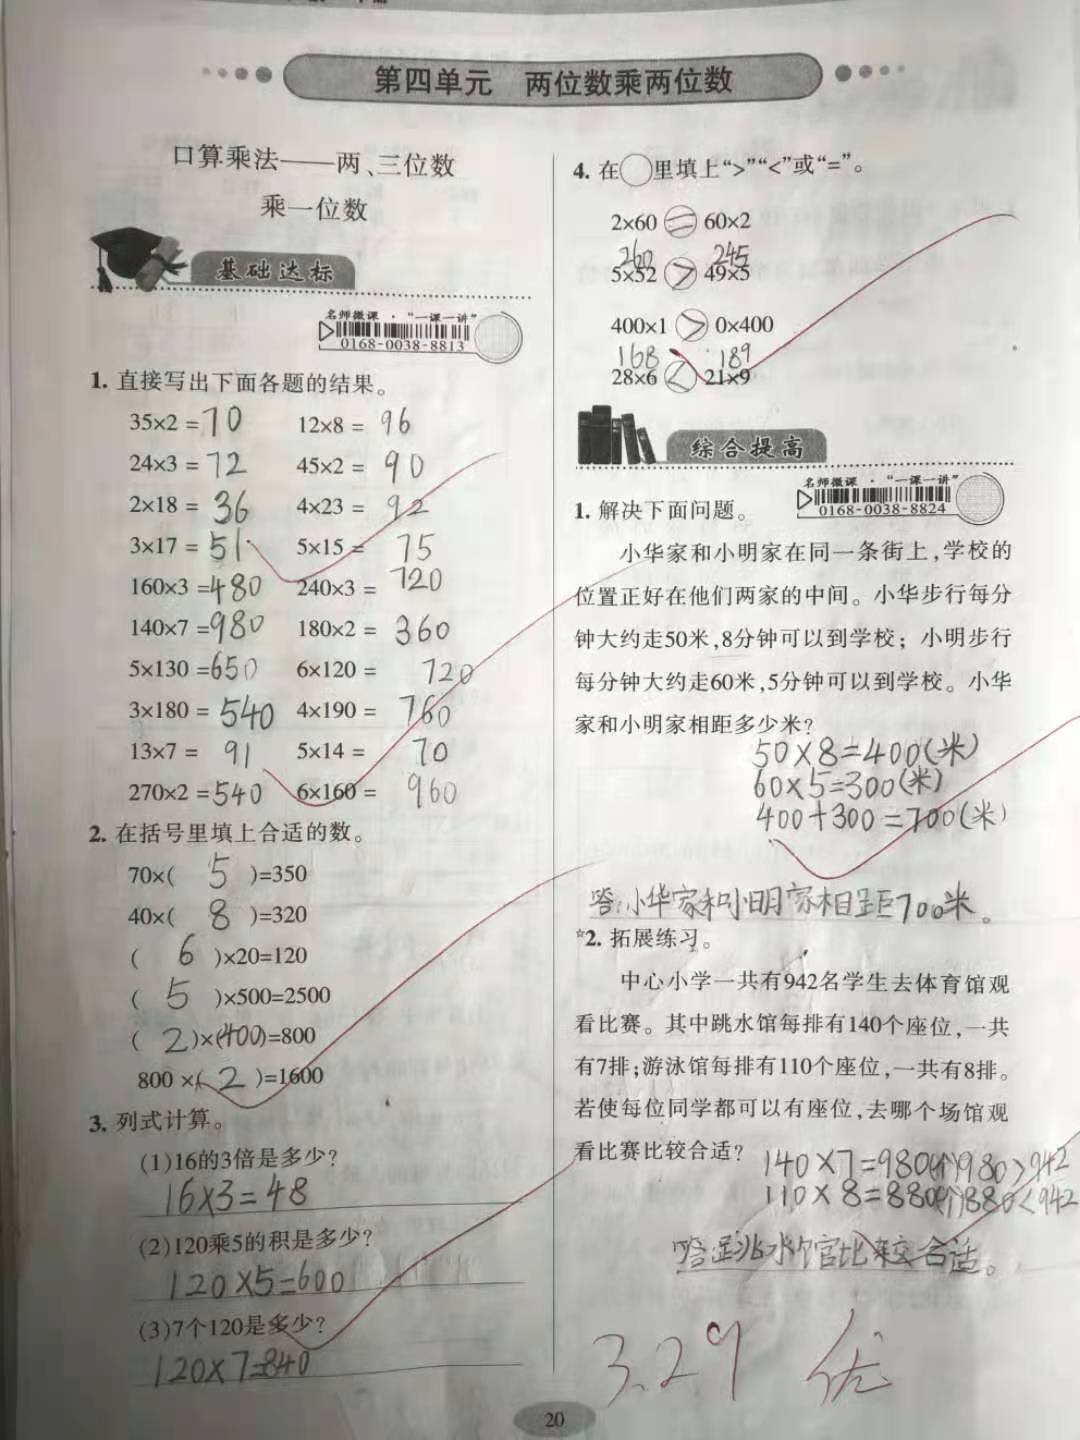 第四单元 两位数乘两位数
口算乘法——两、三位数
乘一位数
基础达标
名师微课·“一课一讲”
0168-0038-8813
1. 直接写出下面各题的结果。
35×2=70 12×8=96
24×3=72 45×2=90
2×18=36 4×23=92
3×17=51 5×15=75
160×3=480 240×3=720
140×7=980 180×2=360
5×130=650 6×120=720
3×180=540 4×190=760
13×7=91 5×14=70
270×2=540 6×160=960
2. 在括号里填上合适的数。
70×(5)=350
40×(8)=320
(6)×20=120
(5)×500=2500
(2)×(400)=800
800×(2)=1600
3. 列式计算。
(1)16的3倍是多少?
16×3=48
(2)120乘5的积是多少?
120×5=600
(3)7个120是多少?
120×7=840
4. 在○里填上“>”“<”或“=”。
2×60=60×2
260 245
5×52>49×5
400×1>0×400
168 189
28×6<21×9
综合提高
名师微课·“一课一讲”
0168-0038-8824
1. 解决下面问题。
小华家和小明家在同一条街上,学校的
位置正好在他们两家的中间。小华步行每分
钟大约走50米,8分钟可以到学校;小明步行
每分钟大约走60米,5分钟可以到学校。小华
家和小明家相距多少米?
50×8=400(米)
60×5=300(米)
400+300=700(米)
答:小华家和小明家相距700米。
☆2. 拓展练习。
中心小学一共有942名学生去体育馆观
看比赛。其中跳水馆每排有140个座位,一共
有7排;游泳馆每排有110个座位,一共有8排。
若使每位同学都可以有座位,去哪个场馆观
看比赛比较合适?
140×7=980(个)980>942
110×8=880(个)880<942
答:跳水馆比较合适。
3.29 优
20